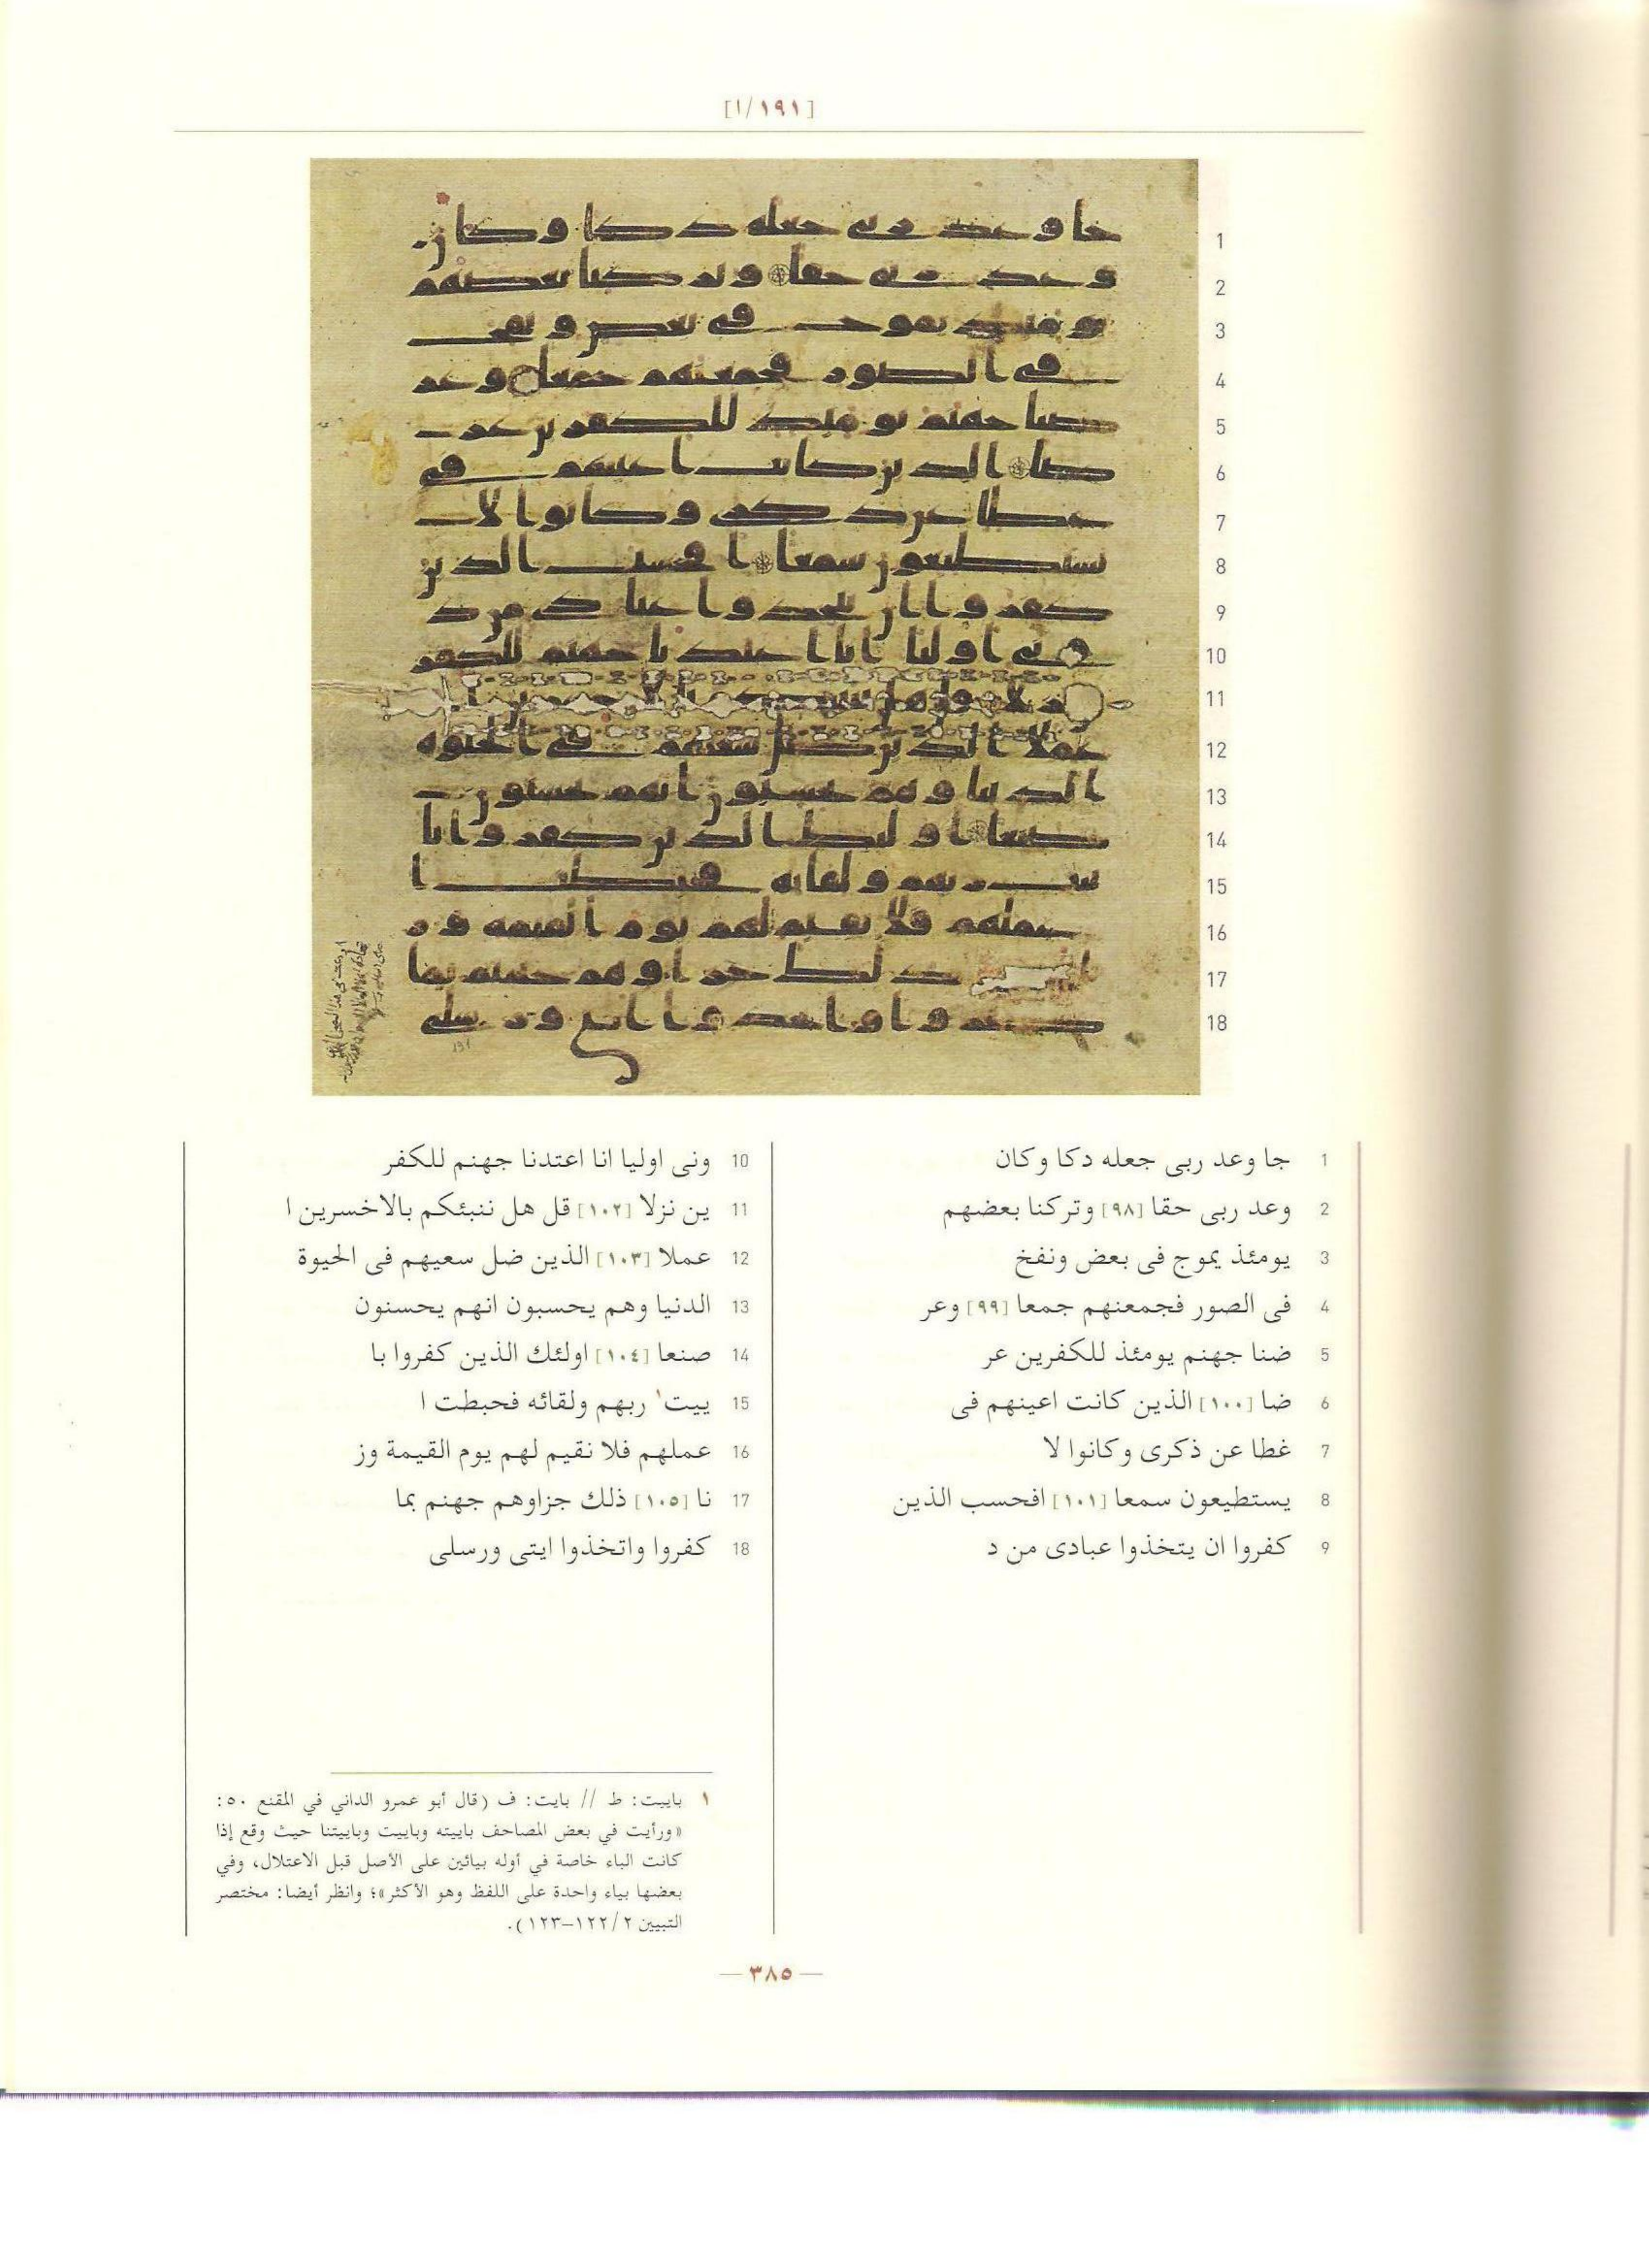 [١٩١/١]
1 جا وعد ربى جعله دكا وكان
2 وعد ربى حقا [٩٨] وتركنا بعضهم
3 يومئذ يموج فى بعض ونفخ
4 فى الصور فجمعنهم جمعا [٩٩] وعر
5 ضنا جهنم يومئذ للكفرين عر
6 ضا [١٠٠] الذين كانت اعينهم فى
7 غطا عن ذكرى وكانوا لا
8 يستطيعون سمعا [١٠١] افحسب الذين
9 كفروا ان يتخذوا عبادى من د
10 ونى اوليا انا اعتدنا جهنم للكفر
11 ين نزلا [١٠٢] قل هل ننبئكم بالاخسرين ا
12 عملا [١٠٣] الذين ضل سعيهم فى الحيوة
13 الدنيا وهم يحسبون انهم يحسنون
14 صنعا [١٠٤] اولئك الذين كفروا با
15 ييت١ ربهم ولقائه فحبطت ا
16 عملهم فلا نقيم لهم يوم القيمة وز
17 نا [١٠٥] ذلك جزاوهم جهنم بما
18 كفروا واتخذوا ايتى ورسلى
١ باييت: ط // بايت: ف (قال أبو عمرو الداني في المقنع ٥٠:
«ورأيت في بعض المصاحف باييته وباييت وباييتنا حيث وقع إذا
كانت الباء خاصة في أوله بيائين على الأصل قبل الاعتلال، وفي
بعضها بياء واحدة على اللفظ وهو الأكثر»؛ وانظر أيضا: مختصر
التبيين ١٢٢/٢–١٢٣).
— ٣٨٥ —